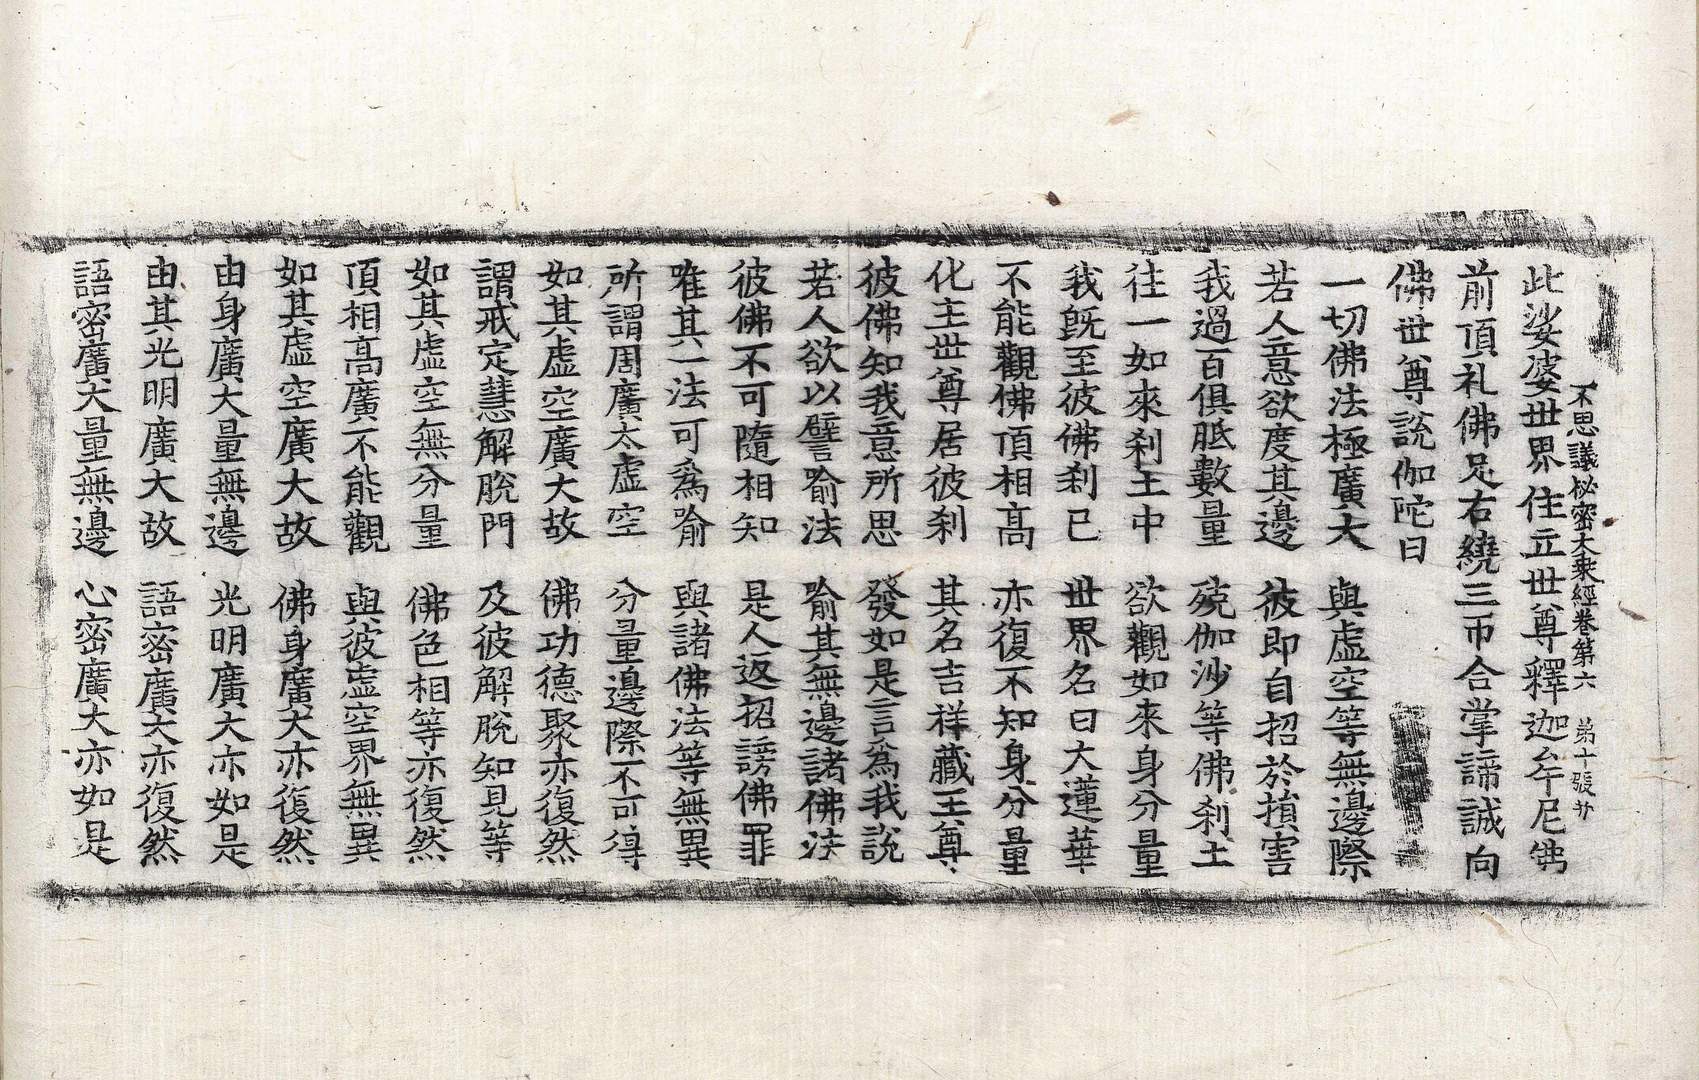 不思議秘密大乘經卷第六 第十張 廾
此娑婆世界住立世尊釋迦牟尼佛
前頂礼佛足右繞三帀合掌諦誠向
佛世尊說伽陀曰
一切佛法極廣大 與虛空等無邊際
若人意欲度其邊 彼即自招於損害
我過百俱胝數量 殑伽沙等佛刹土
往一如來刹土中 欲觀如來身分量
我旣至彼佛刹已 世界名曰大蓮華
不能觀佛頂相高 亦復不知身分量
化主世尊居彼刹 其名吉祥藏王尊
彼佛知我意所思 發如是言爲我說
若人欲以譬喻法 喻其無邊諸佛法
彼佛不可隨相知 是人返招謗佛罪
唯其一法可爲喻 與諸佛法等無異
所謂周廣太虛空 分量邊際不可得
如其虛空廣大故 佛功德聚亦復然
謂戒定慧解脫門 及彼解脫知見等
如其虛空無分量 佛色相等亦復然
頂相高廣不能觀 與彼虛空界無異
如其虛空廣大故 佛身廣大亦復然
由身廣大量無邊 光明廣大亦如是
由其光明廣大故 語密廣大亦復然
語密廣大量無邊 心密廣大亦如是